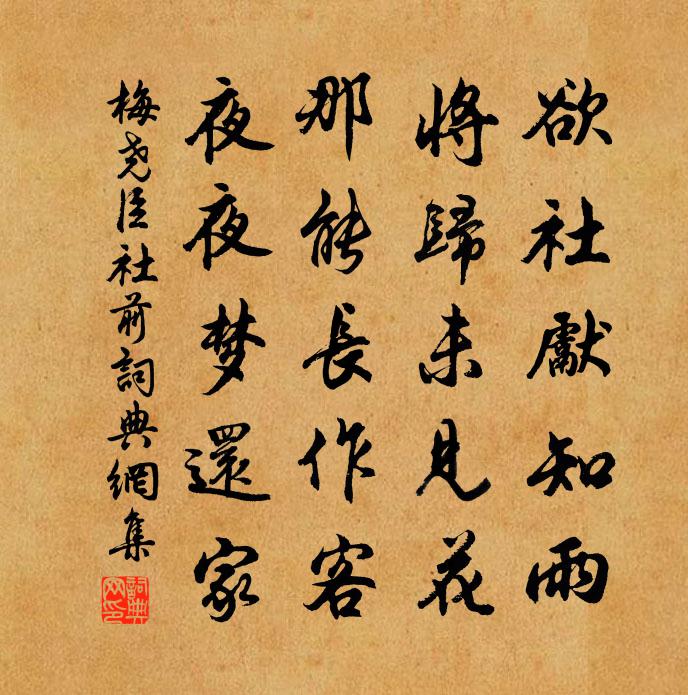 欲社獻知雨
將歸未見花
那能長作客
夜夜梦還家
梅尧臣社前詞典網集
詞典網印